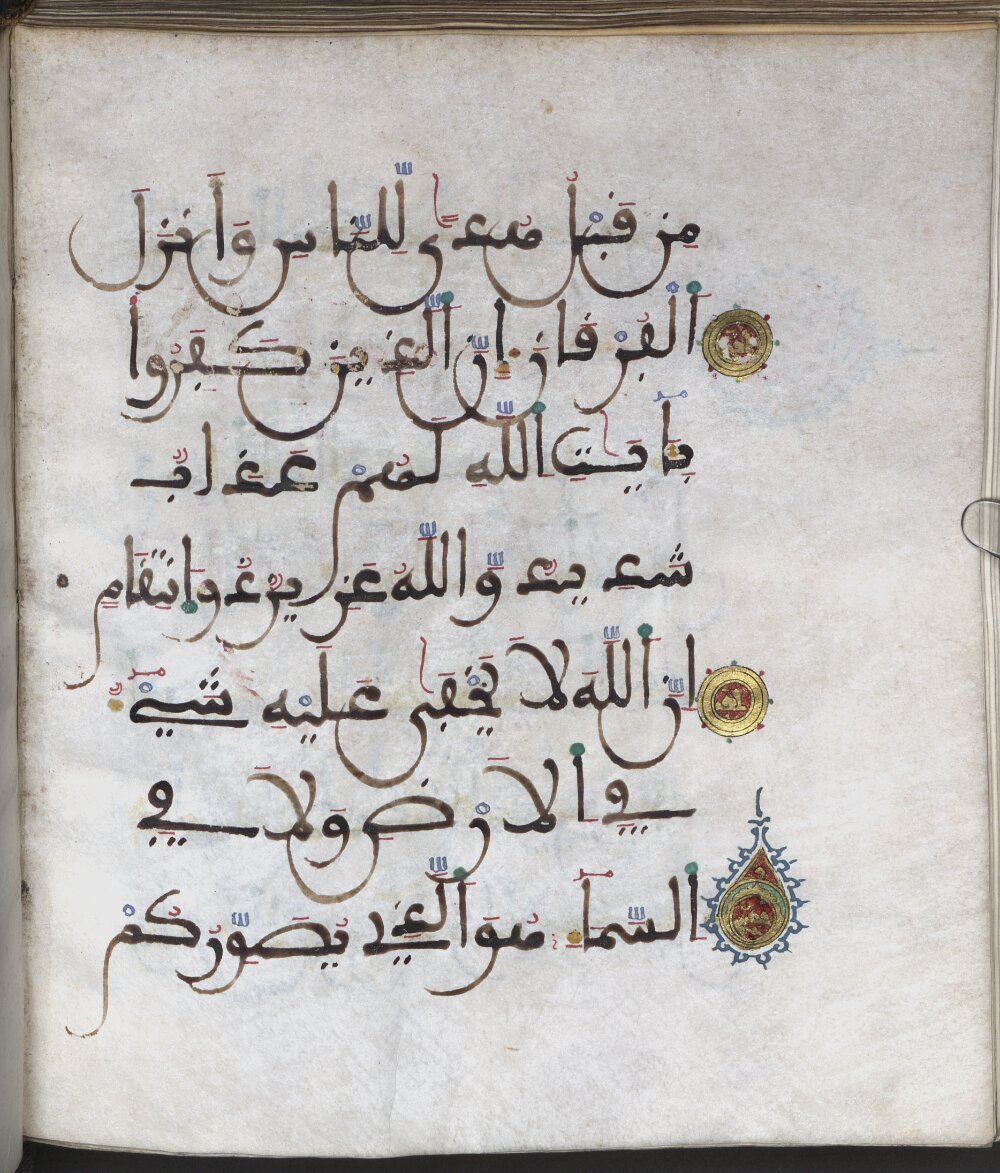 مِن قَبْلُ هُدًى لِّلنَّاسِ وَأَنزَلَ
اَلْفُرْقَانَ إِنَّ اَلَّذِينَ كَفَرُواْ
بِـَٔايَـٰتِ اِللَّهِ لَهُمْ عَذَابٌ
شَدِيدٌ وَّاللَّهُ عَزِيزٌ ذُو اُنتِقَامٍ
إِنَّ اَللَّهَ لَا يَخْفَىٰ عَلَيْهِ شَيْءٌ
فِي اِلَارْضِ وَلَا فِي
اِلسَّمَآءِ هُوَ اَلَّذِي يُصَوِّرُكُمْ